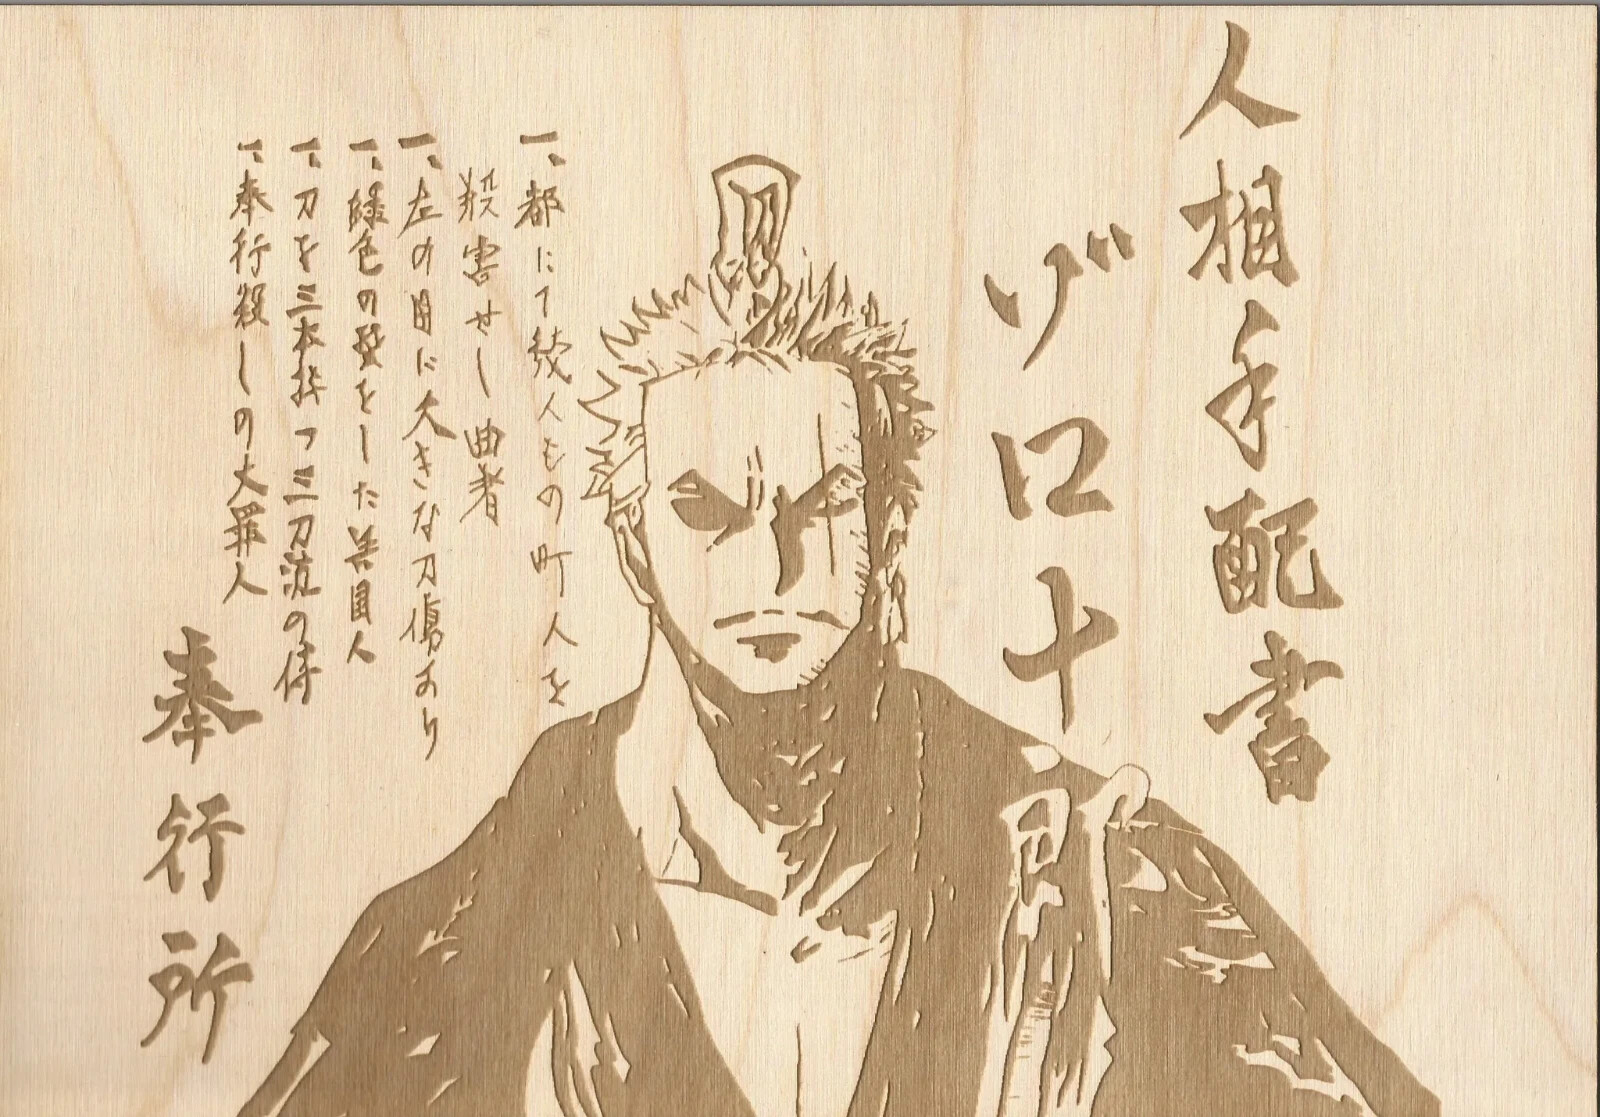 人相手配書
ゾロ十郎
一、都にて幾人もの町人を
殺害せし曲者
一、左の目に大きな刀傷あり
一、緑色の髪をした美国人
一、刀を三本持つ三刀流の侍
一、奉行殺しの大罪人
奉行所